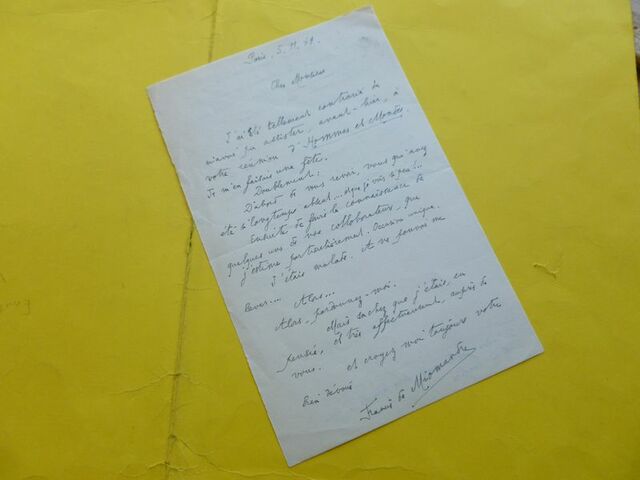 Paris. 5. 11. 51.
Cher Monsieur
J'ai été tellement contrarié de
n'avoir pu assister, avant-hier, à
votre réunion d'Hommes et Mondes.
Je m'en faisais une fête.
Doublement :
D'abord de vous revoir, vous qui avez
été si longtemps absent... et que je vois si peu !...
Ensuite de faire la connaissance de
quelques uns de vos collaborateurs, que
j'estime particulièrement. Occasion unique.
J'étais malade. A ne pouvoir me
lever.... Alors...
Alors, pardonnez-moi.
Mais sachez que j'étais, en
pensée, et très affectueusement auprès de
vous.
et croyez moi toujours votre
bien dévoué
Francis de Miomandre